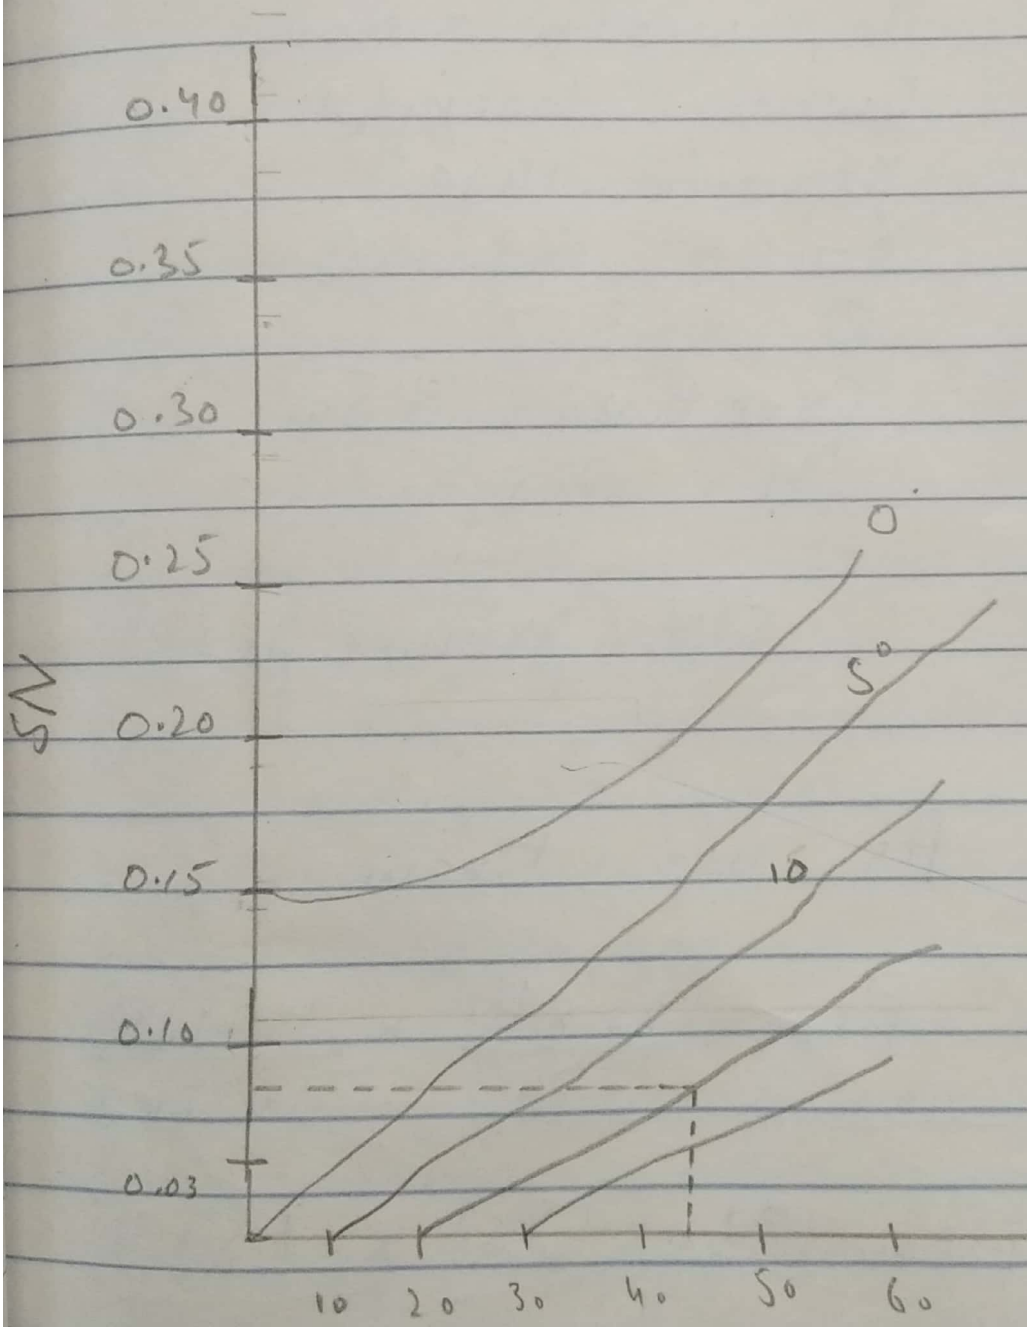 0.40
0.35
0.30
O
0.25
5°
SN
0.20
0.15
10
0.10
0.03
10 20 30 40 50 60